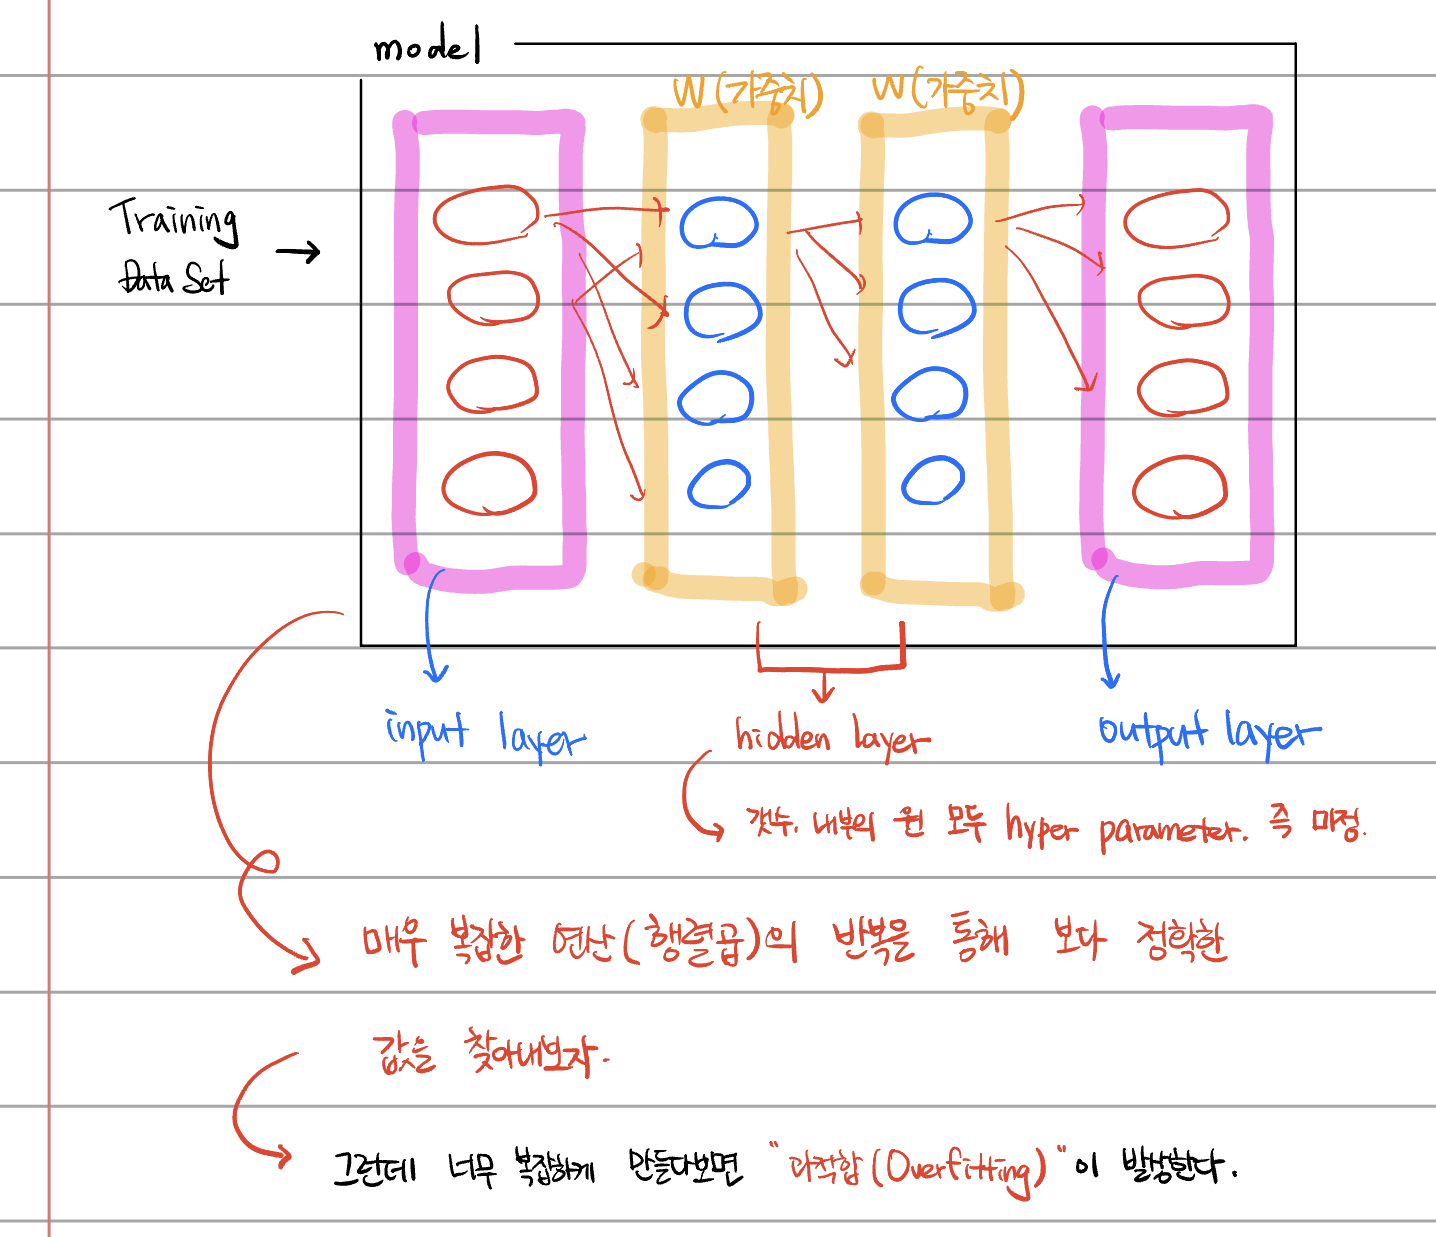 model
W(가중치) W(가중치)
Training
Data Set
input layer
hidden layer
output layer
갯수, 내부의 원 모두 hyper parameter. 즉 미정.
매우 복잡한 연산(행렬곱)의 반복을 통해 보다 정확한
값을 찾아내보자.
그런데 너무 복잡하게 만들다보면 "과적합(Overfitting)"이 발생한다.